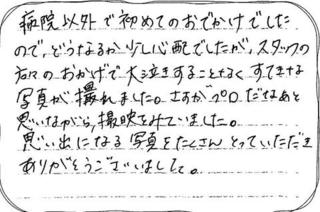 病院以外で初めてのおでかけでした
ので、どうなるか少し心配でしたが、スタッフの
方々のおかげで大泣きすることもなく すてきな
写真が撮れました。さすがプロだなあと
思いながら、撮映をみていました。
思い出になる写真をたくさんとっていただき
ありがとうございました。